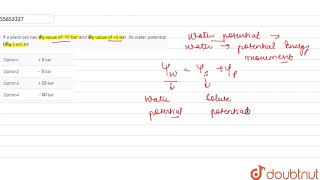 55653337
If a plant cell has Ψs value of -10 bar and Ψp value of +5 bar, its water potential
(Ψw) will be
Option1 + 5 bar
Option2 - 5 bar
Option3 + 50 bar
Option4 - 50 bar
Water potential →
Water → potential Energy
movement
Ψw = Ψs + Ψp
Water Solute
potential potential
doubtnut